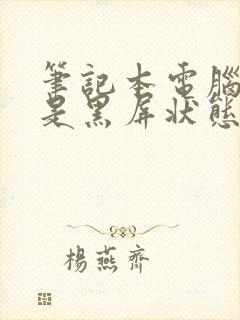 筆記本電腦
是黑屏狀態
楊燕齊